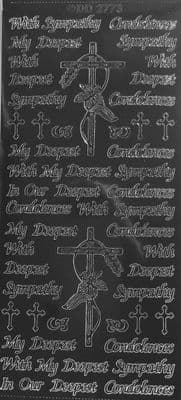 With Sympathy Condolences
My Deepest Sympathy
With With
Deepest Deepest
Sympathy Condolences
My Deepest Condolences
With My Deepest Sympathy
In Our Deepest Condolences
Condolences With Sympathy
My Deepest Condolences
With With
Deepest Deepest
Sympathy Sympathy
My Deepest Condolences
With My Deepest Sympathy
In Our Deepest Condolences